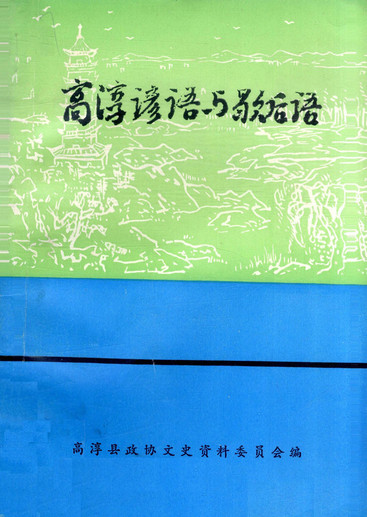 高淳谚语与歇后语
高淳县政协文史资料委员会编